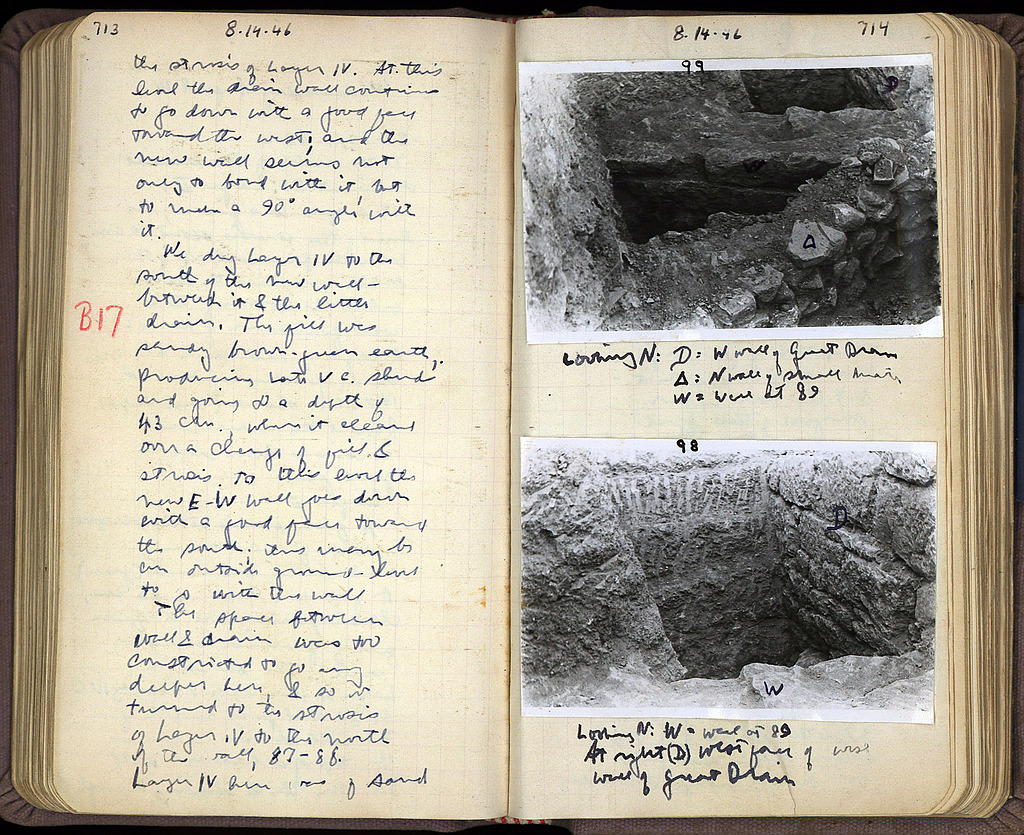 713
8-14-46
the strosis of Layer IV. At this
level the drain wall continues
to go down with a good face
toward the west, and the
new wall seems not
only to bond with it but
to make a 90° angle with
it.
We dug Layer IV to the
south of the new wall -
between it & the little
drain. The fill was
B17
sandy brown-green earth,
producing late V c. sherds
and going to a depth of
43 cm., when it cleared
over a change of fill &
strosis. To this level the
new E-W wall goes down
with a good face toward
the south; this may be
an outside ground-level
to go with this wall
The space between
wall & drain was too
constricted to go any
deeper here, & so we
turned to the strosis
of Layer IV to the north
of the wall, 87-88.
Layer IV here was of sand
8-14-46
714
99
D
W
Δ
Looking N: D = W wall of Great Drain
Δ = N wall of small drain
W = wall at 89
98
D
W
Looking N: W = wall at 89
At right (D) west face of west
wall of great Drain